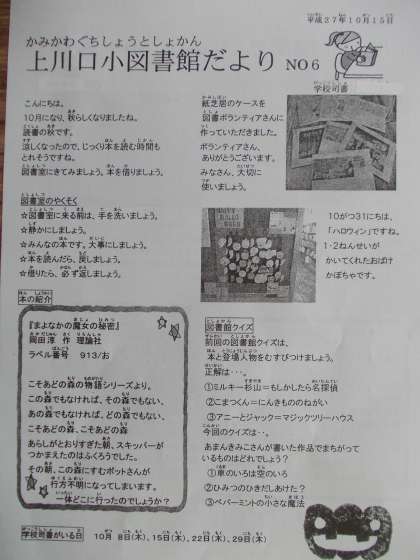 平成27年10月15日
かみかわぐちしょうとしょかん
上川口小図書館だより NO6
学校司書
こんにちは。
10月になり、秋らしくなりましたね。
読書の秋です。
涼しくなったので、じっくり本を読む時間も
とれそうですね。
図書室にきてみましょう。本を借りましょう。
紙芝居のケースを
図書ボランティアさんに
作っていただきました。
ボランティアさん、
ありがとうございます。
みなさん、大切に
使いましょう。
図書室のやくそく
☆図書室に来る前は、手を洗いましょう。
☆静かにしましょう。
☆みんなの本です。大事にしましょう。
☆本を読んだら、戻しましょう。
☆借りたら、必ず返しましょう。
10がつ31にちは、
「ハロウィン」ですね。
1・2ねんせいが
かいてくれたおばけ
かぼちゃです。
本の紹介
『まよなかの魔女の秘密』
岡田淳 作 理論社
ラベル番号 913/お
こそあどの森の物語シリーズより。
この森でもなければ、その森でもない、
あの森でもなければ、どの森でもない、
こそあどの森、こそあどの森
あらしがとおりすぎた朝、スキッパーが
つかまえたのはふくろうでした。
その朝、この森にすむポットさんが
行方不明になってしまいます。
一体どこに行ったのでしょうか?
図書館クイズ
前回の図書館クイズは、
本と登場人物をむすびつけましょう。
正解は・・、
①ミルキー杉山=もしかしたら名探偵
②こまつくん=にんきもののねがい
③アニーとジャック=マジックツリーハウス
今回のクイズは・・。
あまんきみこさんが書いた作品でまちがって
いるものはどれでしょう?
①車のいろは空のいろ
②ひみつのひきだしあけた?
③ペパーミントの小さな魔法
学校司書がいる日 10月 8日(木)、15日(木)、22日(木)、29日(木)